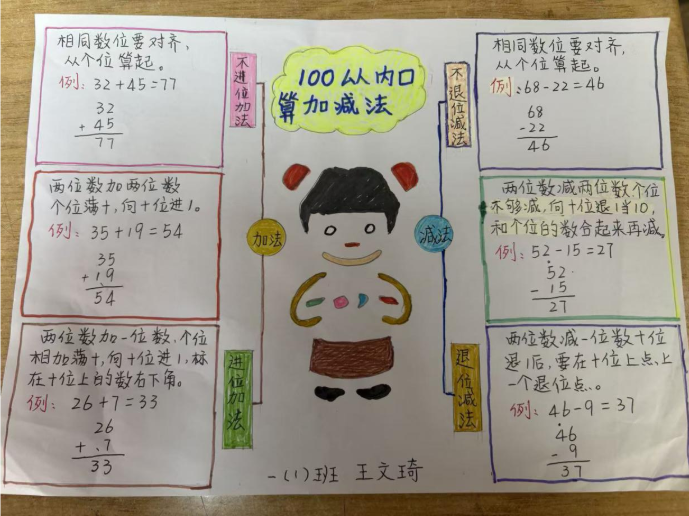 100以内口
算加减法
不进位加法
不退位减法
加法
减法
进位加法
退位减法
相同数位要对齐,
从个位算起。
例: 32+45=77
32
+ 45
77
两位数加两位数
个位满十,向十位进1。
例: 35+19=54
35
+ 19
54
两位数加一位数,个位
相加满十,向十位进1,标
在十位上的数右下角。
例: 26+7=33
26
+ 7
33
相同数位要对齐,
从个位算起。
例:68-22=46
68
-22
46
两位数减两位数个位
不够减,向十位退1当10,
和个位的数合起来再减。
例: 52-15=27
52
- 15
27
两位数减一位数十位
退1后,要在十位上点上
一个退位点。
例: 46-9=37
46
- 9
37
一(1)班 王文琦